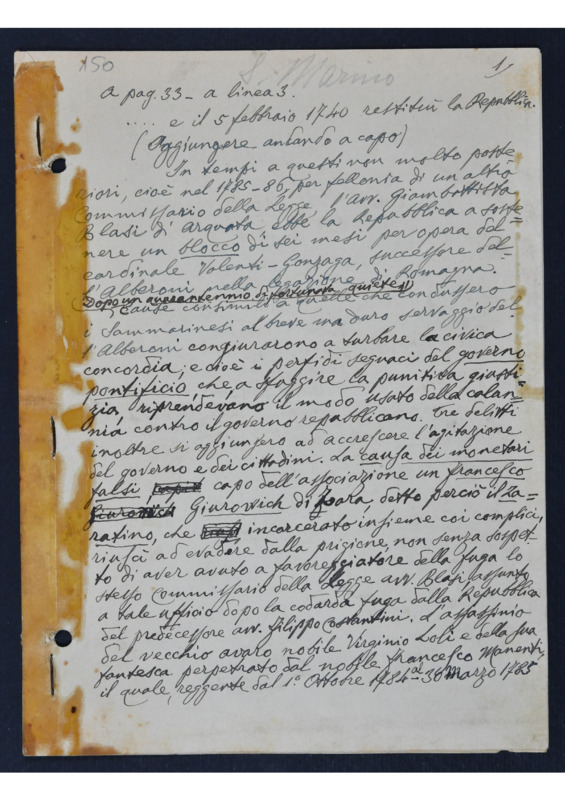 150
S. Marino
1)
a pag. 33 - a linea 3.
.... e il 5 febbraio 1740 restituì la Repubblica.
(Aggiungere andando a capo)
In tempi a questi non molto poste
riori, cioè nel 1785-86, per fellonia di un altro
Commissario della Legge, l'avv. Giambattista
Blasi d'Arquata ebbe la Repubblica a soste=
nere un blocco di sei mesi per opera del
cardinale Valenti-Gonzaga, successore del=
l'Alberoni nella legazione di Romagna.
Dopo un quarantennio di fortunata quiete
Cause consimili a quelle che condussero
i Sammarinesi al breve ma duro servaggio del
l'Alberoni congiurarono a turbare la civica
concordia; e cioè i perfidi seguaci del governo
pontificio che a sfuggire la punitiva giusti=
zia, riprendevano il modo usato della calun=
nia contro il governo repubblicano. Tre delitti
inoltre si aggiunsero ad accrescere l'agitazione
del governo e dei cittadini. La causa dei monetari
falsi capo dell'associazione un francesco
Giurowich Giurowich di Zara, detto perciò il Za=
ratino, che incarcerato insieme coi complici,
riuscì ad evadere dalla prigione, non senza sospet=
to di aver avuto a favoreggiatore della fuga lo
stesso Commissario della Legge avv. Blasi, assunto
a tale ufficio dopo la codarda fuga dalla Repubblica
del predecessore avv. Filippo Costantini. L'assassinio
del vecchio avaro nobile Virginio Loli e della sua
fantesca perpetrato dal nobile francesco Manenti,
il quale, reggente dal 1º. Ottobre 1784 al 30 Marzo 1785